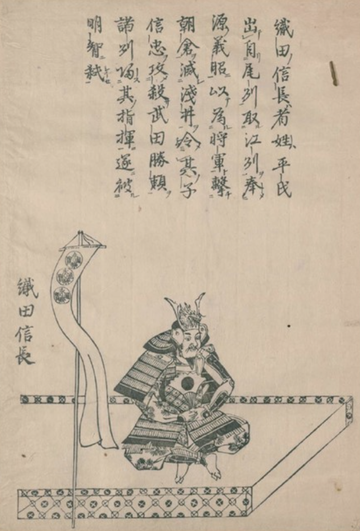 織田信長者姓平氏
出自尾州取江州奉
源義昭以為將軍擊
朝倉滅淺井令其子
信忠攻殺武田勝頼
諸州帰其指揮遂被
明智弑
織田信長